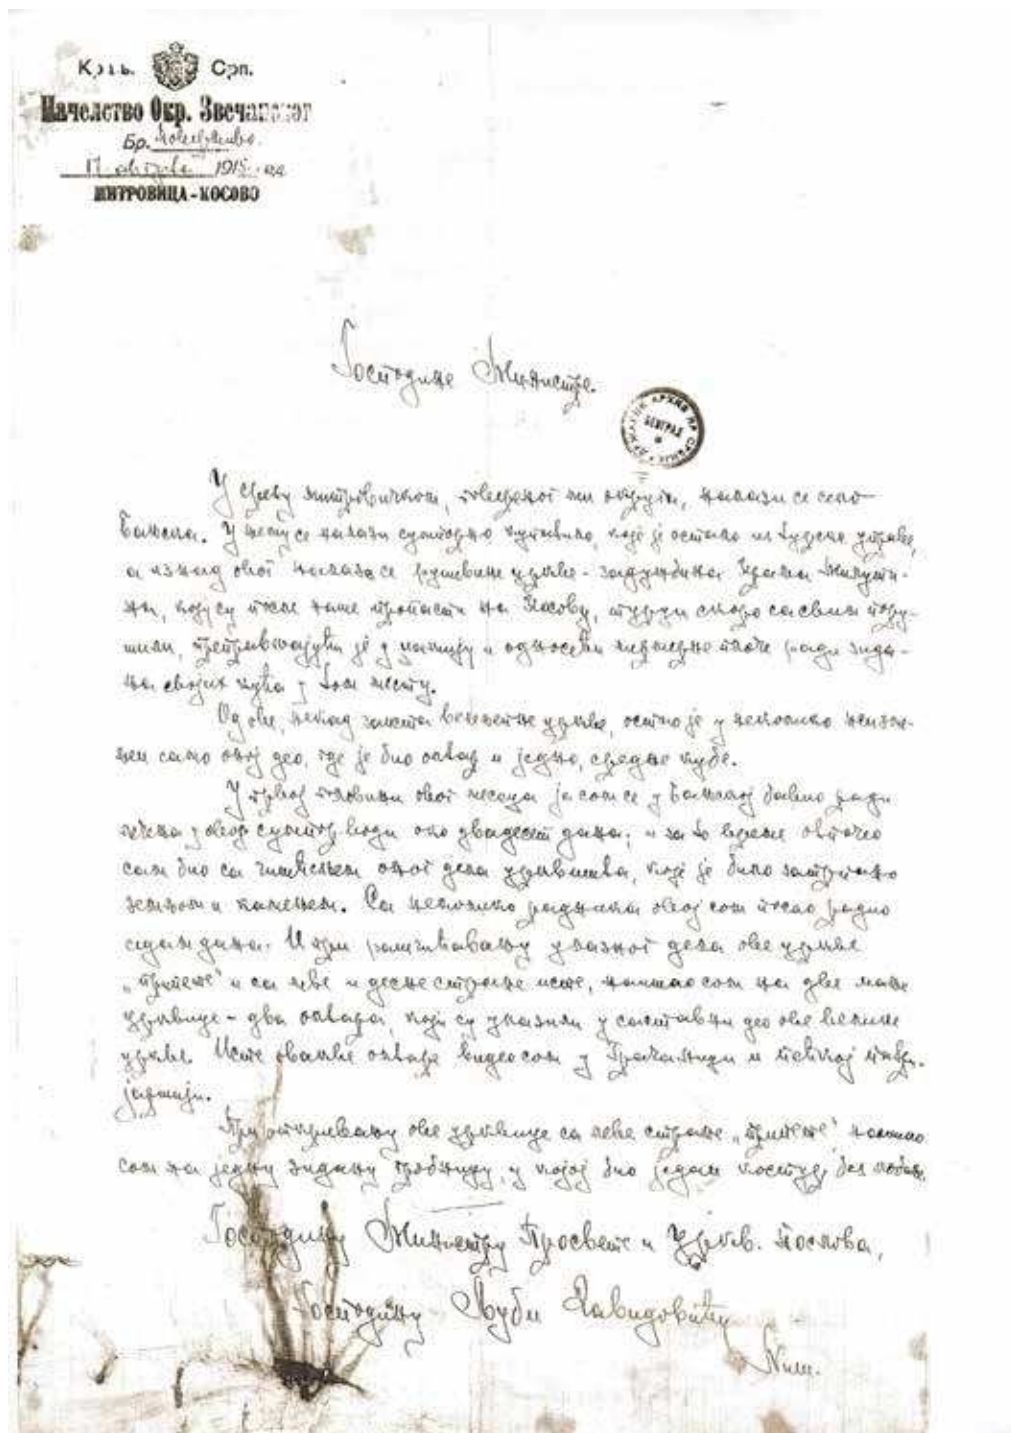 Краљ. Срп.
Начелство Окр. Звечанског
Бр. Поверљиво
17 августа 1915. год
МИТРОВИЦА-КОСОВО
Господине Министре.
ДРЖАВНИ АРХИВ НР СРБИЈЕ БЕОГРАД
У срезу митровичком, повереног ми округа, налази се село
Бањска. У њему се налази сумпорно купатило, које је остало из турске управе,
а изнад овог налазе се рушевине цркве - задужбина Краља Милути-
на, коју су после наше пропасти на Косову, турци скоро сасвим пору-
шили, претварајући је у џамију и односећи мермерне плоче ради зида-
ња својих кућа у том месту.
Од ове, некад заиста величатне цркве, остао је у неколико
само онај део, где је био олтар и једно, средње кубе.
У првој половини овог месеца ја сам се у Бањској бавио ради
лечења у овој сумпор. води око двадесет дана; и за то време отпочео
сам био са чишћењем оног дела црквишта, које је било затрпано
земљом и камењем. Са неколико радника овај сам посао радио
седам дана. И при рашчишћавању улазног дела ове цркве
„припрате" и са леве и десне стране исте, наишао сам на две мале
црквице - два олтара, који су улазили у саставни део ове велике
цркве. Исте овакве олтаре видео сам у Грачаници и пећкој патри-
јаршији.
При откривању ове црквице са леве стране „припрате" наишао
сам на једну зидану гробницу, у којој био један костур, без
Господину Министру Просвете и Црквв. Послова,
Господину Љуби Давидовићу
Ниш.